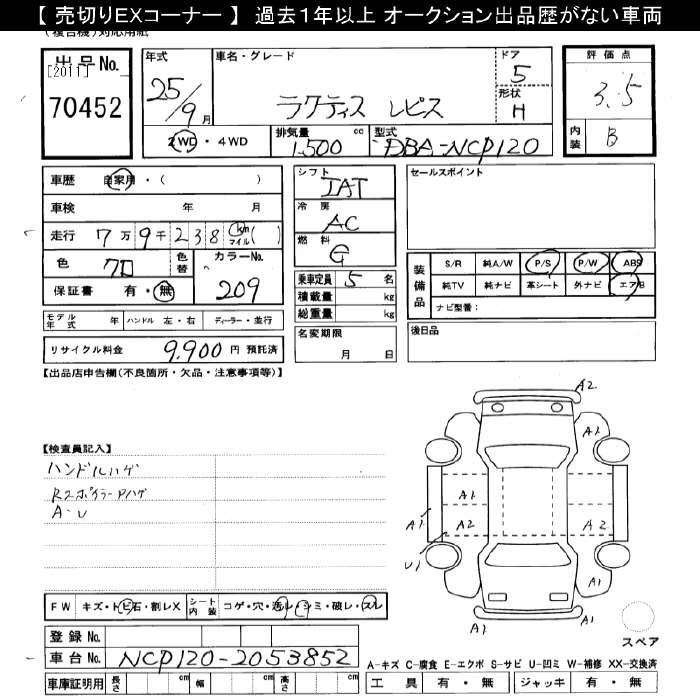 【 売切りEXコーナー 】 過去1年以上 オークション出品歴がない車両
(複合機)対応用紙
出品No.
[2011]
70452
年式
25/9月
車名・グレード
ラクティス レピス
ドア
5
形状
H
評価点
3.5
内装
B
2WD・4WD
排気量
1.500 cc
型式
DBA-NCP120
車歴 自家用・( )
車検 年 月
走行 7万9千238 km マイル( )
色 クロ 色替 カラーNo. 209
保証書 有・無
シフト
IAT
冷房
AC
燃料
G
乗車定員 5 名
積載量 kg
総重量 kg
セールスポイント
装備品
S/R 純A/W P/S P/W ABS
純TV 純ナビ 革シート 外ナビ エアB
ナビ型番:
モデル年式 年 ハンドル 左・右 ディーラー・並行
リサイクル料金 9.900 円 預託済
名変期限
月 日
後日品
【出品店申告欄(不良箇所・欠品・注意事項等)】
【検査員記入】
ハンドルハゲ
RスポイラーPハゲ
A-U
A2
A1
A1
A1
A1
A2
A2
U1
A1
A1
A1
FW キズ・トビ石・割レX シート内装 コゲ・穴・汚レ・シミ・破レ・スレ
スペア
登録No.
車台No. NCP120-2053852
A-キズ C-腐食 E-エクボ S-サビ U-凹ミ W-補修 XX-交換済
車庫証明用 長さ cm 幅 cm 高さ cm
工具 有・無 ジャッキ 有・無